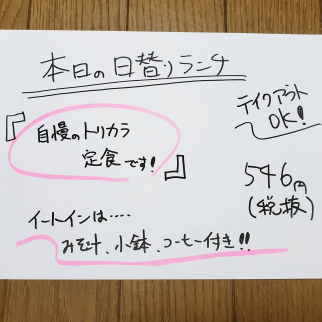 本日の日替りランチ
テイクアウト
OK!
『自慢のトリカラ
定食です!』
546円
(税抜)
イートインは‥‥
みそ汁、小鉢、コーヒー付き!!